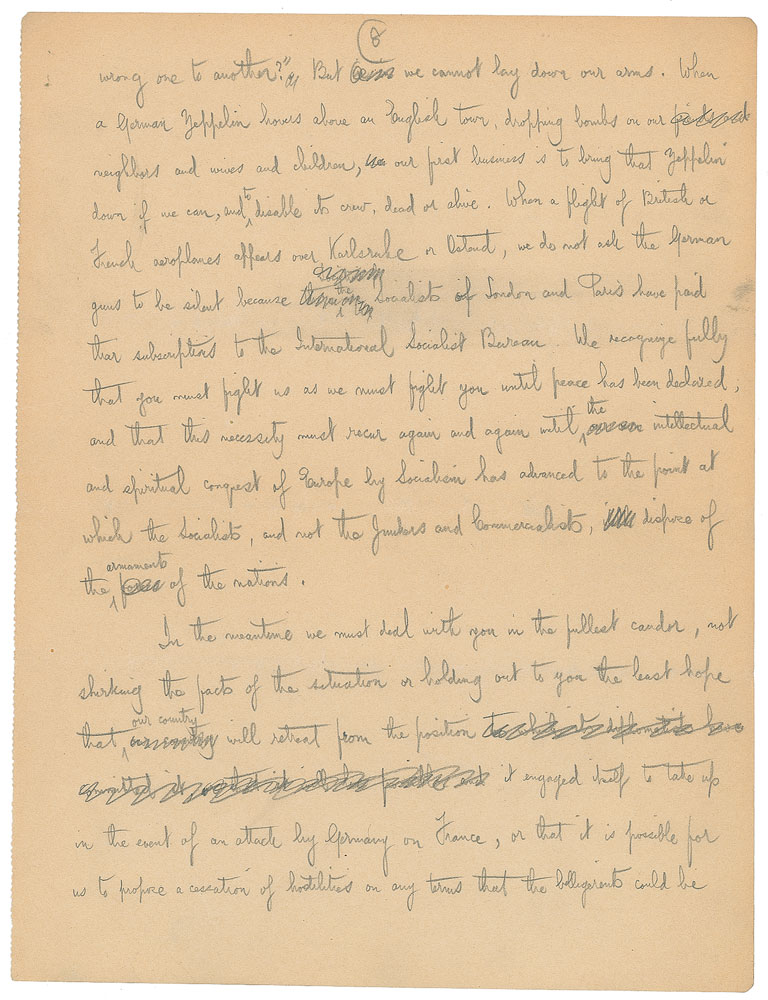 8
wrong one to another?" But we cannot lay down our arms. When
a German Zeppelin hovers above an English town, dropping bombs on our
neighbors and wives and children, our first business is to bring that Zeppelin
down if we can, and to disable its crew, dead or alive. When a flight of British or
French aeroplanes appears over Karlsruhe or Ostend, we do not ask the German
guns to be silent because the Socialists of London and Paris have paid
their subscriptions to the International Socialist Bureau. We recognize fully
that you must fight us as we must fight you until peace has been declared,
and that this necessity must recur again and again until the intellectual
and spiritual conquest of Europe by Socialism has advanced to the point at
which the Socialists, and not the Junkers and Commercialists, dispose of
the armaments of the nations.
In the meantime we must deal with you in the fullest candor, not
shirking the facts of the situation or holding out to you the least hope
that our country will retreat from the position
it engaged itself to take up
in the event of an attack by Germany on France, or that it is possible for
us to propose a cessation of hostilities on any terms that the belligerents could be